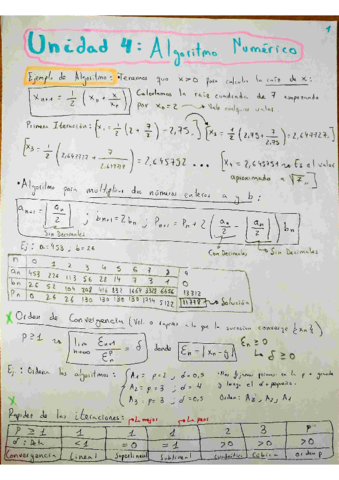 1
Unidad 4: Algoritmo Numérico
Ejemplo de Algoritmo: Tenemos que x>0 para calcular la raíz de x:
Xn+1 = 1/2 (Xn + x/xn) Calculamos la raíz cuadrada de 7 empezando
por x0=2 → Vale cualquier valor
Primera Iteración: {x1 = 1/2 (2 + 7/2) = 2,75 [X2 = 1/2 (2,75 + 7/2,75) = 2,647727
[X3 = 1/2 (2,647727 + 7/2,647727) = 2,645752 ... [X4 = 2,645751 → Es el valor
aproximado a √7
• Algoritmo para multiplicar dos números enteros a y b:
an+1 = [an/2] ; bn+1 = 2bn ; Pn+1 = Pn + 2 (an/2 - [an/2]) bn
Sin Decimales Con Decimales Sin Decimales
Ej: a=453, b=26
n 0 1 2 3 4 5 6 7 8 9
an 453 226 113 56 28 14 7 3 1 0
bn 26 52 104 208 416 832 1664 3328 6656 13312
Pn 0 26 26 130 130 130 130 1794 5122 11778 → Solución
X Orden de Convergencia (Vel. o rapidez a la que la sucesión converge {xn})
P≥1 → lim n→∞ En+1/En^P = δ donde En = |xn - l| En≥0 ↳ δ≥0
Ej: Ordena los algoritmos: A1 = p=2, d=0,5
A2 = p=3; d=4
A3 = p=3; d=0,5 Orden: A3, A2, A1
X
Rapidez de las iteraciones: La mejor La peor
P≥1 1 1 1 2 3 P
<1 =0 =1 >0 >0 >0
Convergencia Lineal Superlineal Sublineal Cuadrática Cúbica orden p